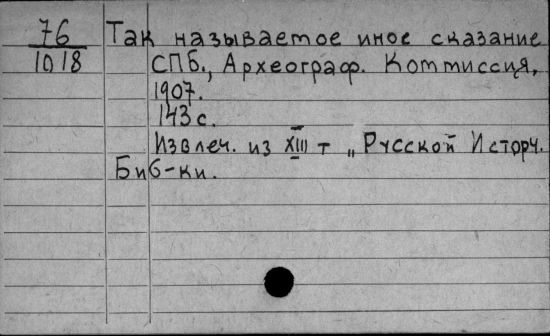 76
1018
Так называетое иное сказание
СПб., Археограф. Коттиссия,
1907.
143 с.
Извлеч. из XIII т „Русской Историч.
Биб-ки.